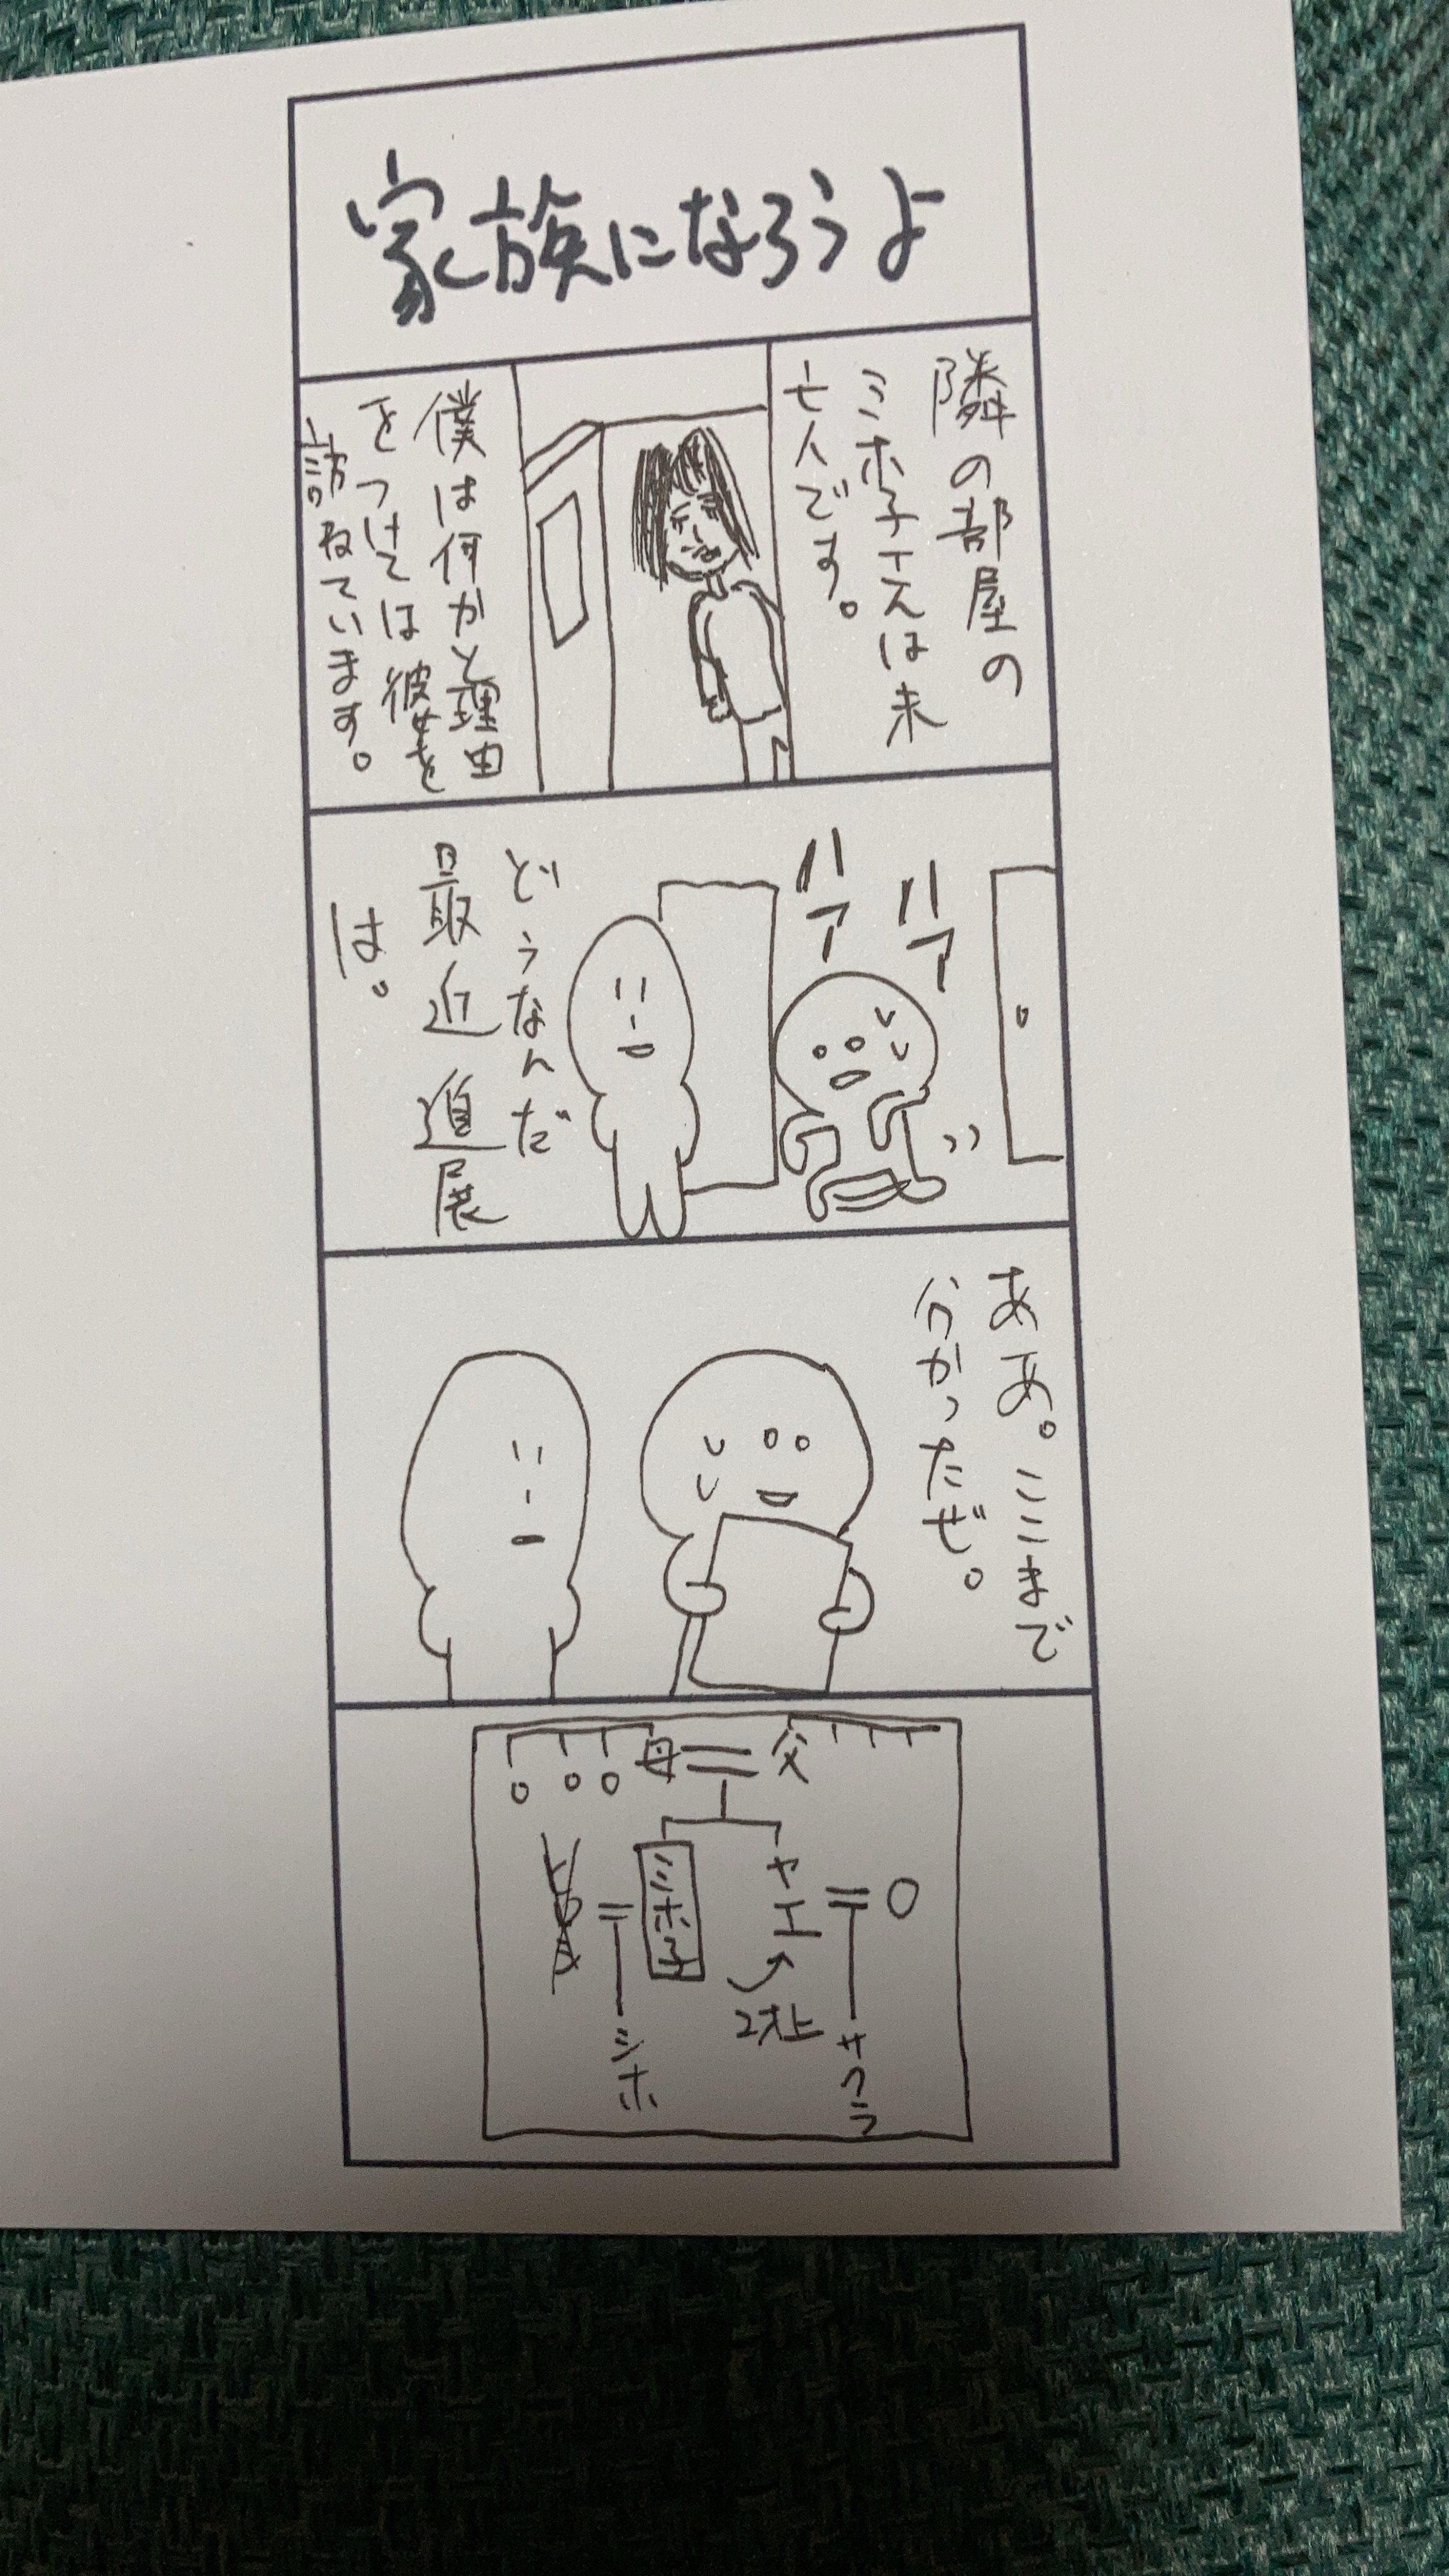 家族になろうよ
隣の部屋の
ミホ子さんは未
亡人です。
僕は何かと理由
をつけては彼女を
訪ねています。
ハア
ハア
どうなんだ
最近進展
は。
ああ。ここまで
分かったぜ。
父
母
ヤエ
ミホ子
2才上
サクラ
シホ